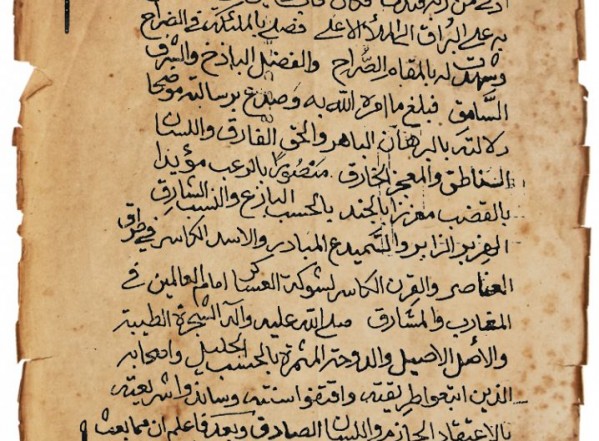 به على البراق الى الملأ الاعلى فصلى بالملئكة
وشهدت له بالمقام الصراح والفضل الباذخ والشرف
السامق فبلغ ما امره الله به وصدع برسالته موضحا
دلالته بالبرهان الباهر والحق الفارق واللسان
الناطق والمعجز الخارق منصورا بالرعب مؤيدا
بالقضب معززا بالجند بالحسب البازغ والنسب الشارق
الهزبر الزاير والسميدع المبادر والاسد الكاسر في
العناصر والقرن الكاسر لشوكة العساكر امام العالمين في
المغارب والمشارق صلى الله عليه وآله الشجرة الطيبة
والأصل الاصيل والدوحة المثمرة بالحسب الجليل واصحابه
الذين اتبعوا طريقته واقتفوا سنته وساندوا شريعته
بالاعتقاد الجازم واللسان الصادق وبعد فاعلم ان مما بعث